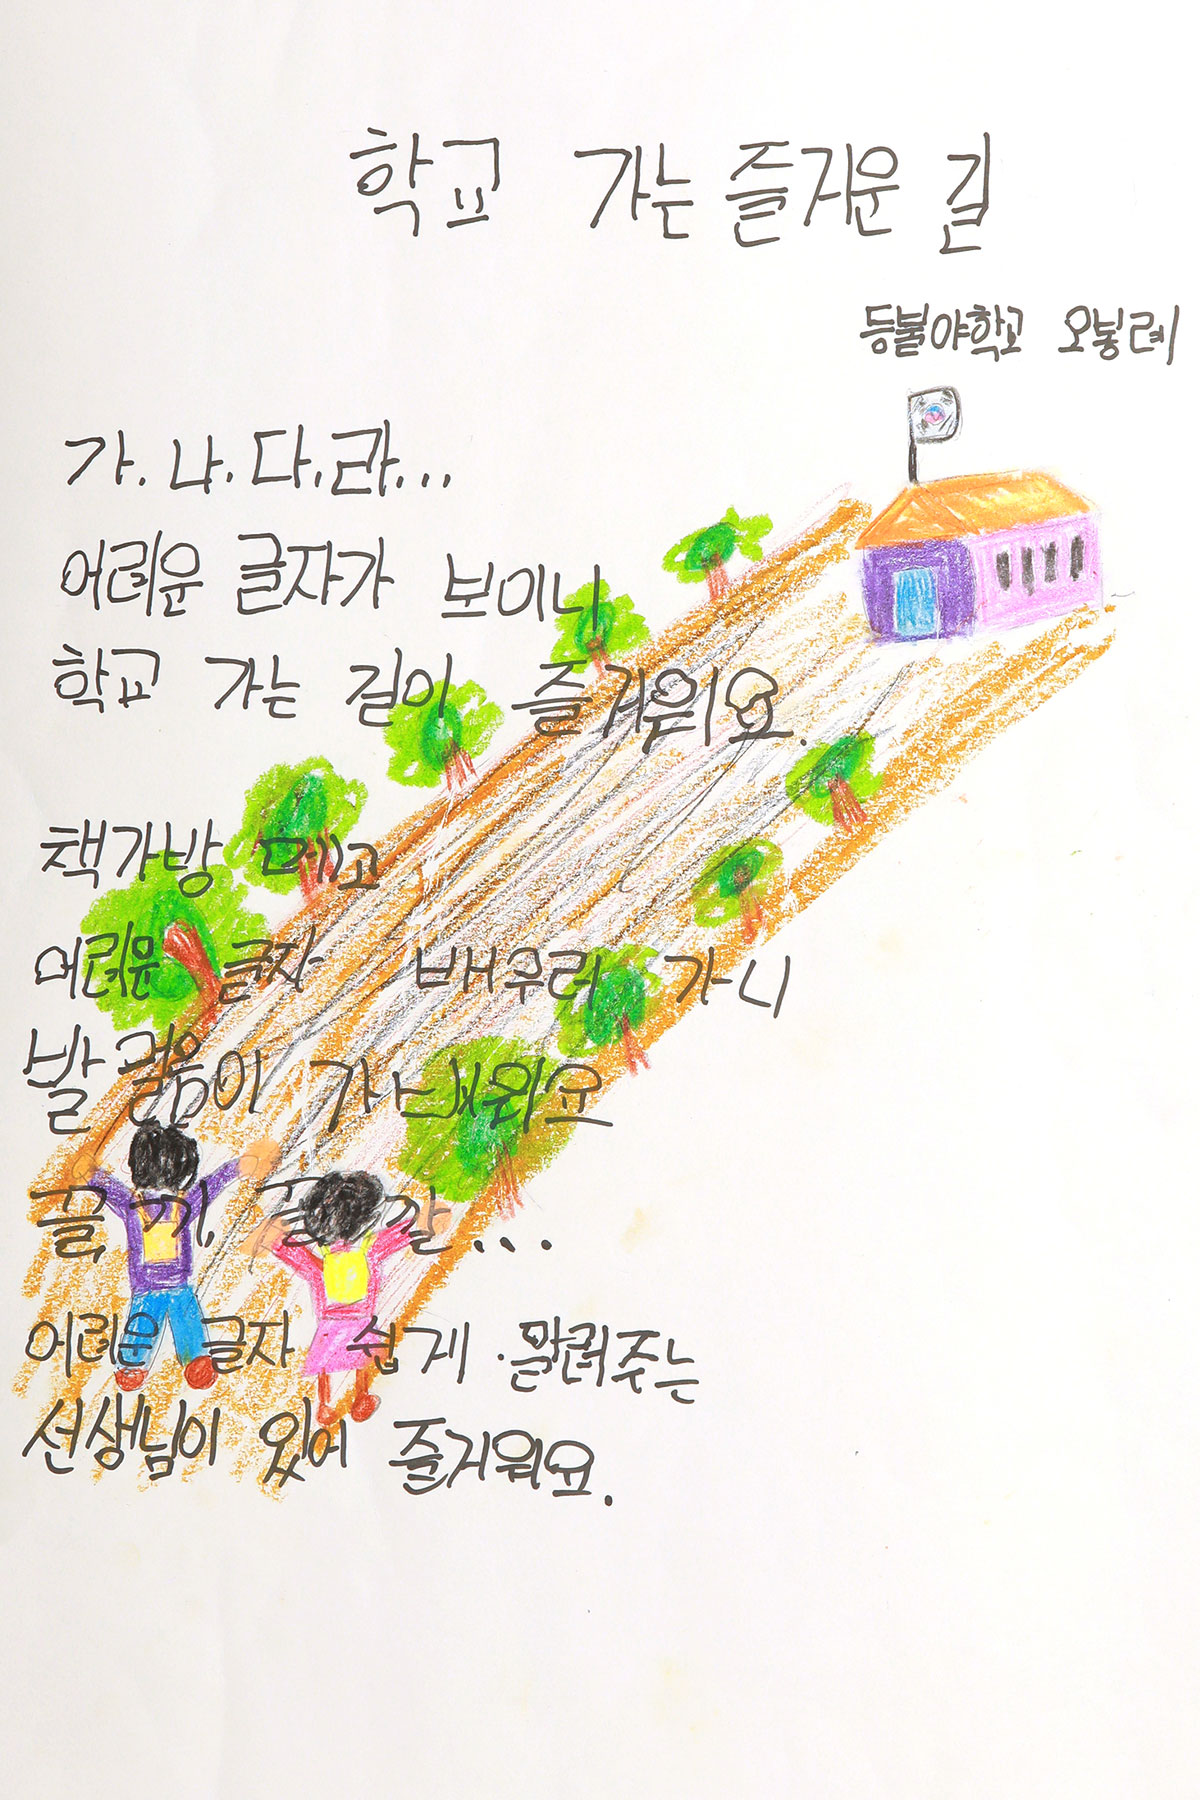 학교 가는 즐거운 길
등불야학교 오봉례
가.나.다.라...
어려운 글자가 보이니
학교 가는 길이 즐거워요.
책가방 메고
어려운 글자 배우러 가니
발걸음이 가벼워요
끌, 끼, 깔...
어려운 글자 쉽게 알려주는
선생님이 있어 즐거워요.